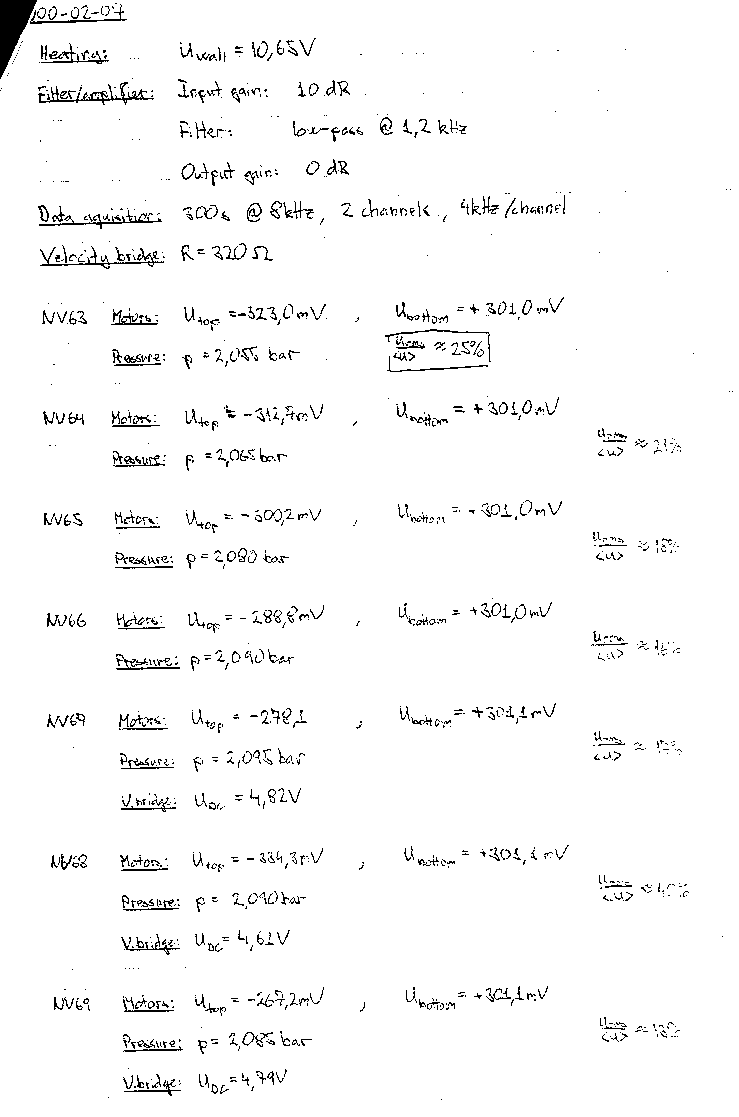 00-02-07
Heating: Uwall = 10,65V
Filter/amplifier: Input gain: 10 dB
Filter: low-pass @ 1,2 kHz
Output gain: 0 dB
Data aquisition: 300s @ 8kHz, 2 channels, 4kHz/channel
Velocity bridge: R = 320 Ω
NV63 Motors: Utop = -323,0mV , Ubottom = +301,0mV
Pressure: p = 2,055 bar Urms/<U> ≈ 25%
NV64 Motors: Utop = -312,7mV , Ubottom = +301,0mV
Pressure: p = 2,065 bar Urms/<U> ≈ 21%
NV65 Motors: Utop = -300,2mV , Ubottom = +301,0mV
Pressure: p = 2,080 bar Urms/<U> ≈ 18%
NV66 Motors: Utop = -288,8mV , Ubottom = +301,0mV
Pressure: p = 2,090 bar Urms/<U> ≈ 16%
NV67 Motors: Utop = -278,1 , Ubottom = +301,1mV
Pressure: p = 2,095 bar Urms/<U> ≈
V.bridge: UDC = 4,82V
NV68 Motors: Utop = -334,3mV , Ubottom = +301,1mV
Pressure: p = 2,090 bar Urms/<U> ≈ 40%
V.bridge: UDC = 4,61V
NV69 Motors: Utop = -267,2mV , Ubottom = +301,1mV
Pressure: p = 2,085 bar Urms/<U> ≈
V.bridge: UDC = 4,79V